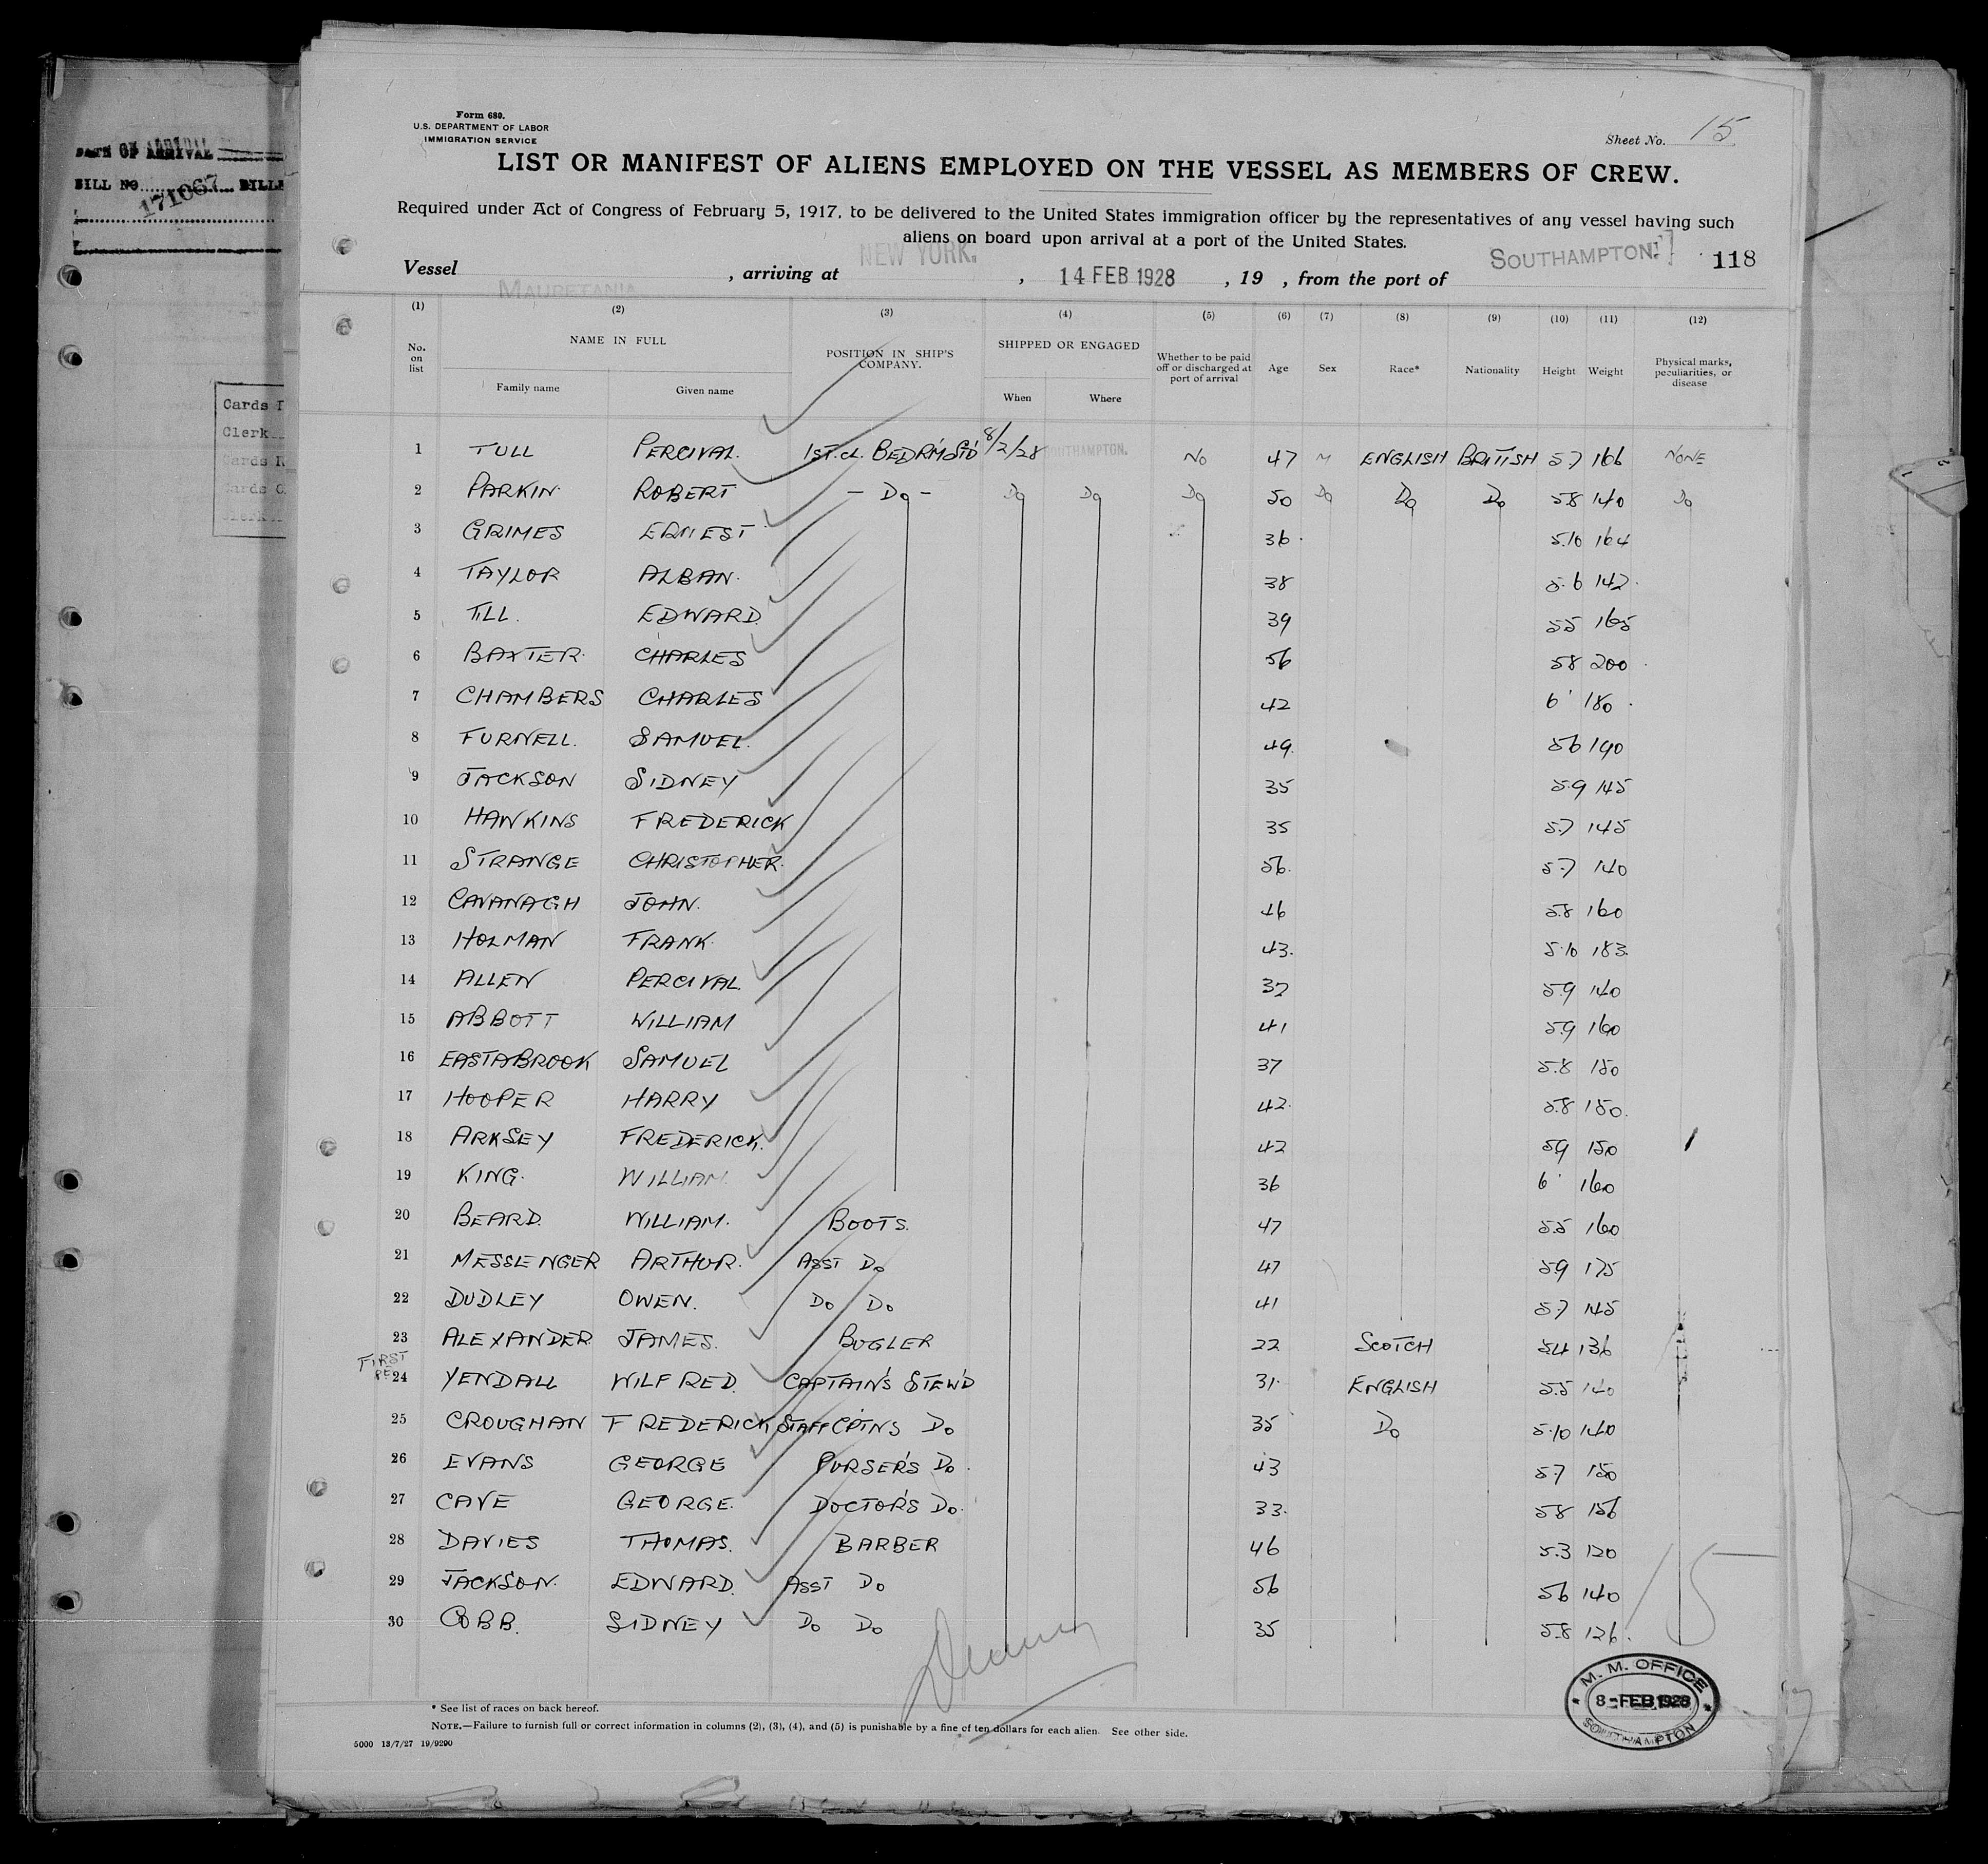 DATE OF ARRIVAL
BILL NO. 171067
Cards
Clerk
Form 680.
U.S. DEPARTMENT OF LABOR
IMMIGRATION SERVICE
Sheet No. 15
LIST OR MANIFEST OF ALIENS EMPLOYED ON THE VESSEL AS MEMBERS OF CREW.
Required under Act of Congress of February 5, 1917, to be delivered to the United States immigration officer by the representatives of any vessel having such
aliens on board upon arrival at a port of the United States.
Vessel MAURETANIA, arriving at NEW YORK., 14 FEB 1928, 19 , from the port of SOUTHAMPTON. 118
(1) (2) (3) (4) (5) (6) (7) (8) (9) (10) (11) (12)
No. on list NAME IN FULL POSITION IN SHIP'S COMPANY. SHIPPED OR ENGAGED Whether to be paid off or discharged at port of arrival Age Sex Race* Nationality Height Weight Physical marks, peculiarities, or disease
Family name Given name When Where
1 TULL PERCIVAL. 1ST. CL. BEDR'M ST'D 8/2/28 SOUTHAMPTON. NO 47 M ENGLISH BRITISH 5.7 166 NONE
2 PARKIN ROBERT – DO – DO DO DO 50 DO DO DO 5.8 140 DO
3 GRIMES ERNEST 36 5.10 164
4 TAYLOR ALBAN. 38 5.6 142
5 TILL. EDWARD. 39 5.5 165
6 BAXTER CHARLES 56 5.8 200
7 CHAMBERS CHARLES 42 6' 180
8 FURNELL. SAMUEL. 49. 5.6 190
9 JACKSON SIDNEY 35 5.9 145
10 HAWKINS FREDERICK 35 5.7 145
11 STRANGE CHRISTOPHER. 56. 5.7 140
12 CAVANAGH JOHN. 46 5.8 160
13 HOLMAN FRANK. 43. 5.10 183.
14 ALLEN PERCIVAL. 37 5.9 140
15 ABBOTT WILLIAM 41 5.9 160
16 EASTABROOK SAMUEL 37 5.8 150
17 HOOPER HARRY 42. 5.8 150.
18 ARKSEY FREDERICK. 42 5.9 150
19 KING. WILLIAM. 36 6' 160
20 BEARD. WILLIAM. BOOTS. 47 5.5 160
21 MESSLENGER ARTHUR. ASST DO 47 5.9 175
22 DUDLEY OWEN. DO DO 41 5.7 145
23 ALEXANDER JAMES. BUGLER 22 SCOTCH 5.4 136
FIRST
24 YENDALL WILFRED. CAPTAIN'S STEW'D 31. ENGLISH 5.5 140
25 CROUGHAN FREDERICK STAFF CPTNS DO 35 DO 5.10 140
26 EVANS GEORGE PURSER'S DO. 43 5.7 150
27 CAVE GEORGE. DOCTOR'S DO. 33. 5.8 156
28 DAVIES THOMAS. BARBER 46 5.3 120
29 JACKSON. EDWARD. ASST DO 56 5.6 140
30 COBB. SIDNEY DO DO 35 5.8 126.
15
M. M. OFFICE
8 - FEB 1928
SOUTHAMPTON
* See list of races on back hereof.
NOTE.—Failure to furnish full or correct information in columns (2), (3), (4), and (5) is punishable by a fine of ten dollars for each alien. See other side.
5000 13/7/27 19/9290